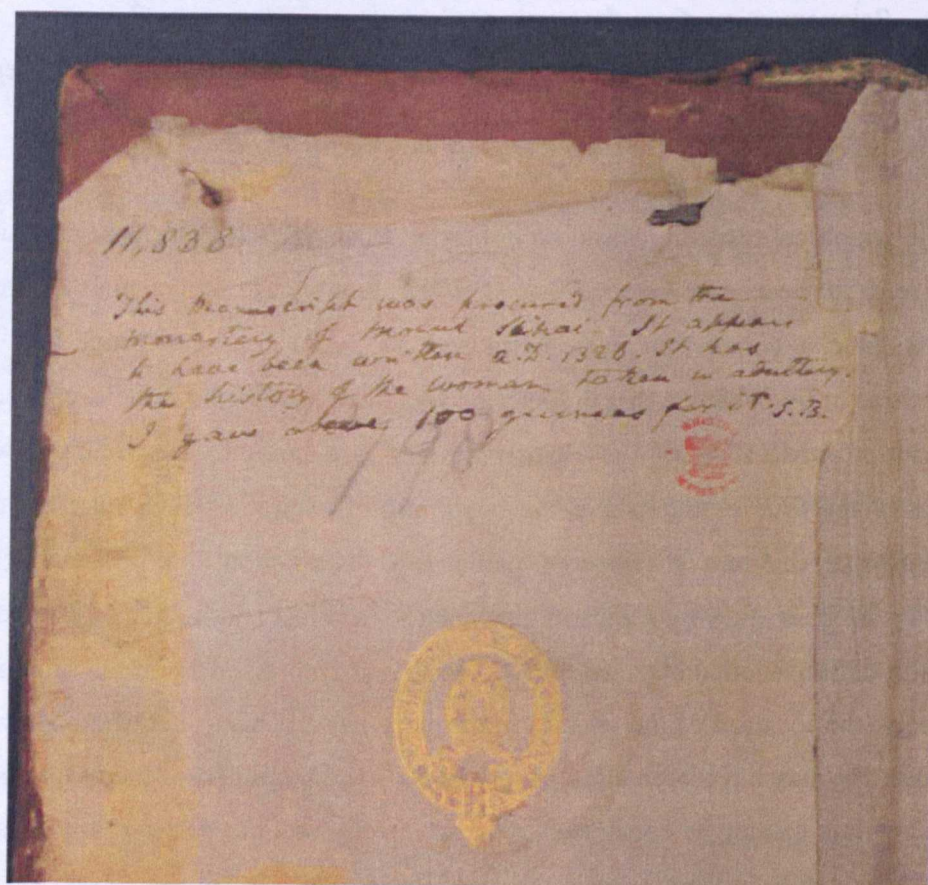 11,838
This manuscript was procured from the
monastery of Mount Sinai. It appears
to have been written A.D. 1326. It has
the history of the woman taken in adultery.
I gave above 100 guineas for it. S.B.